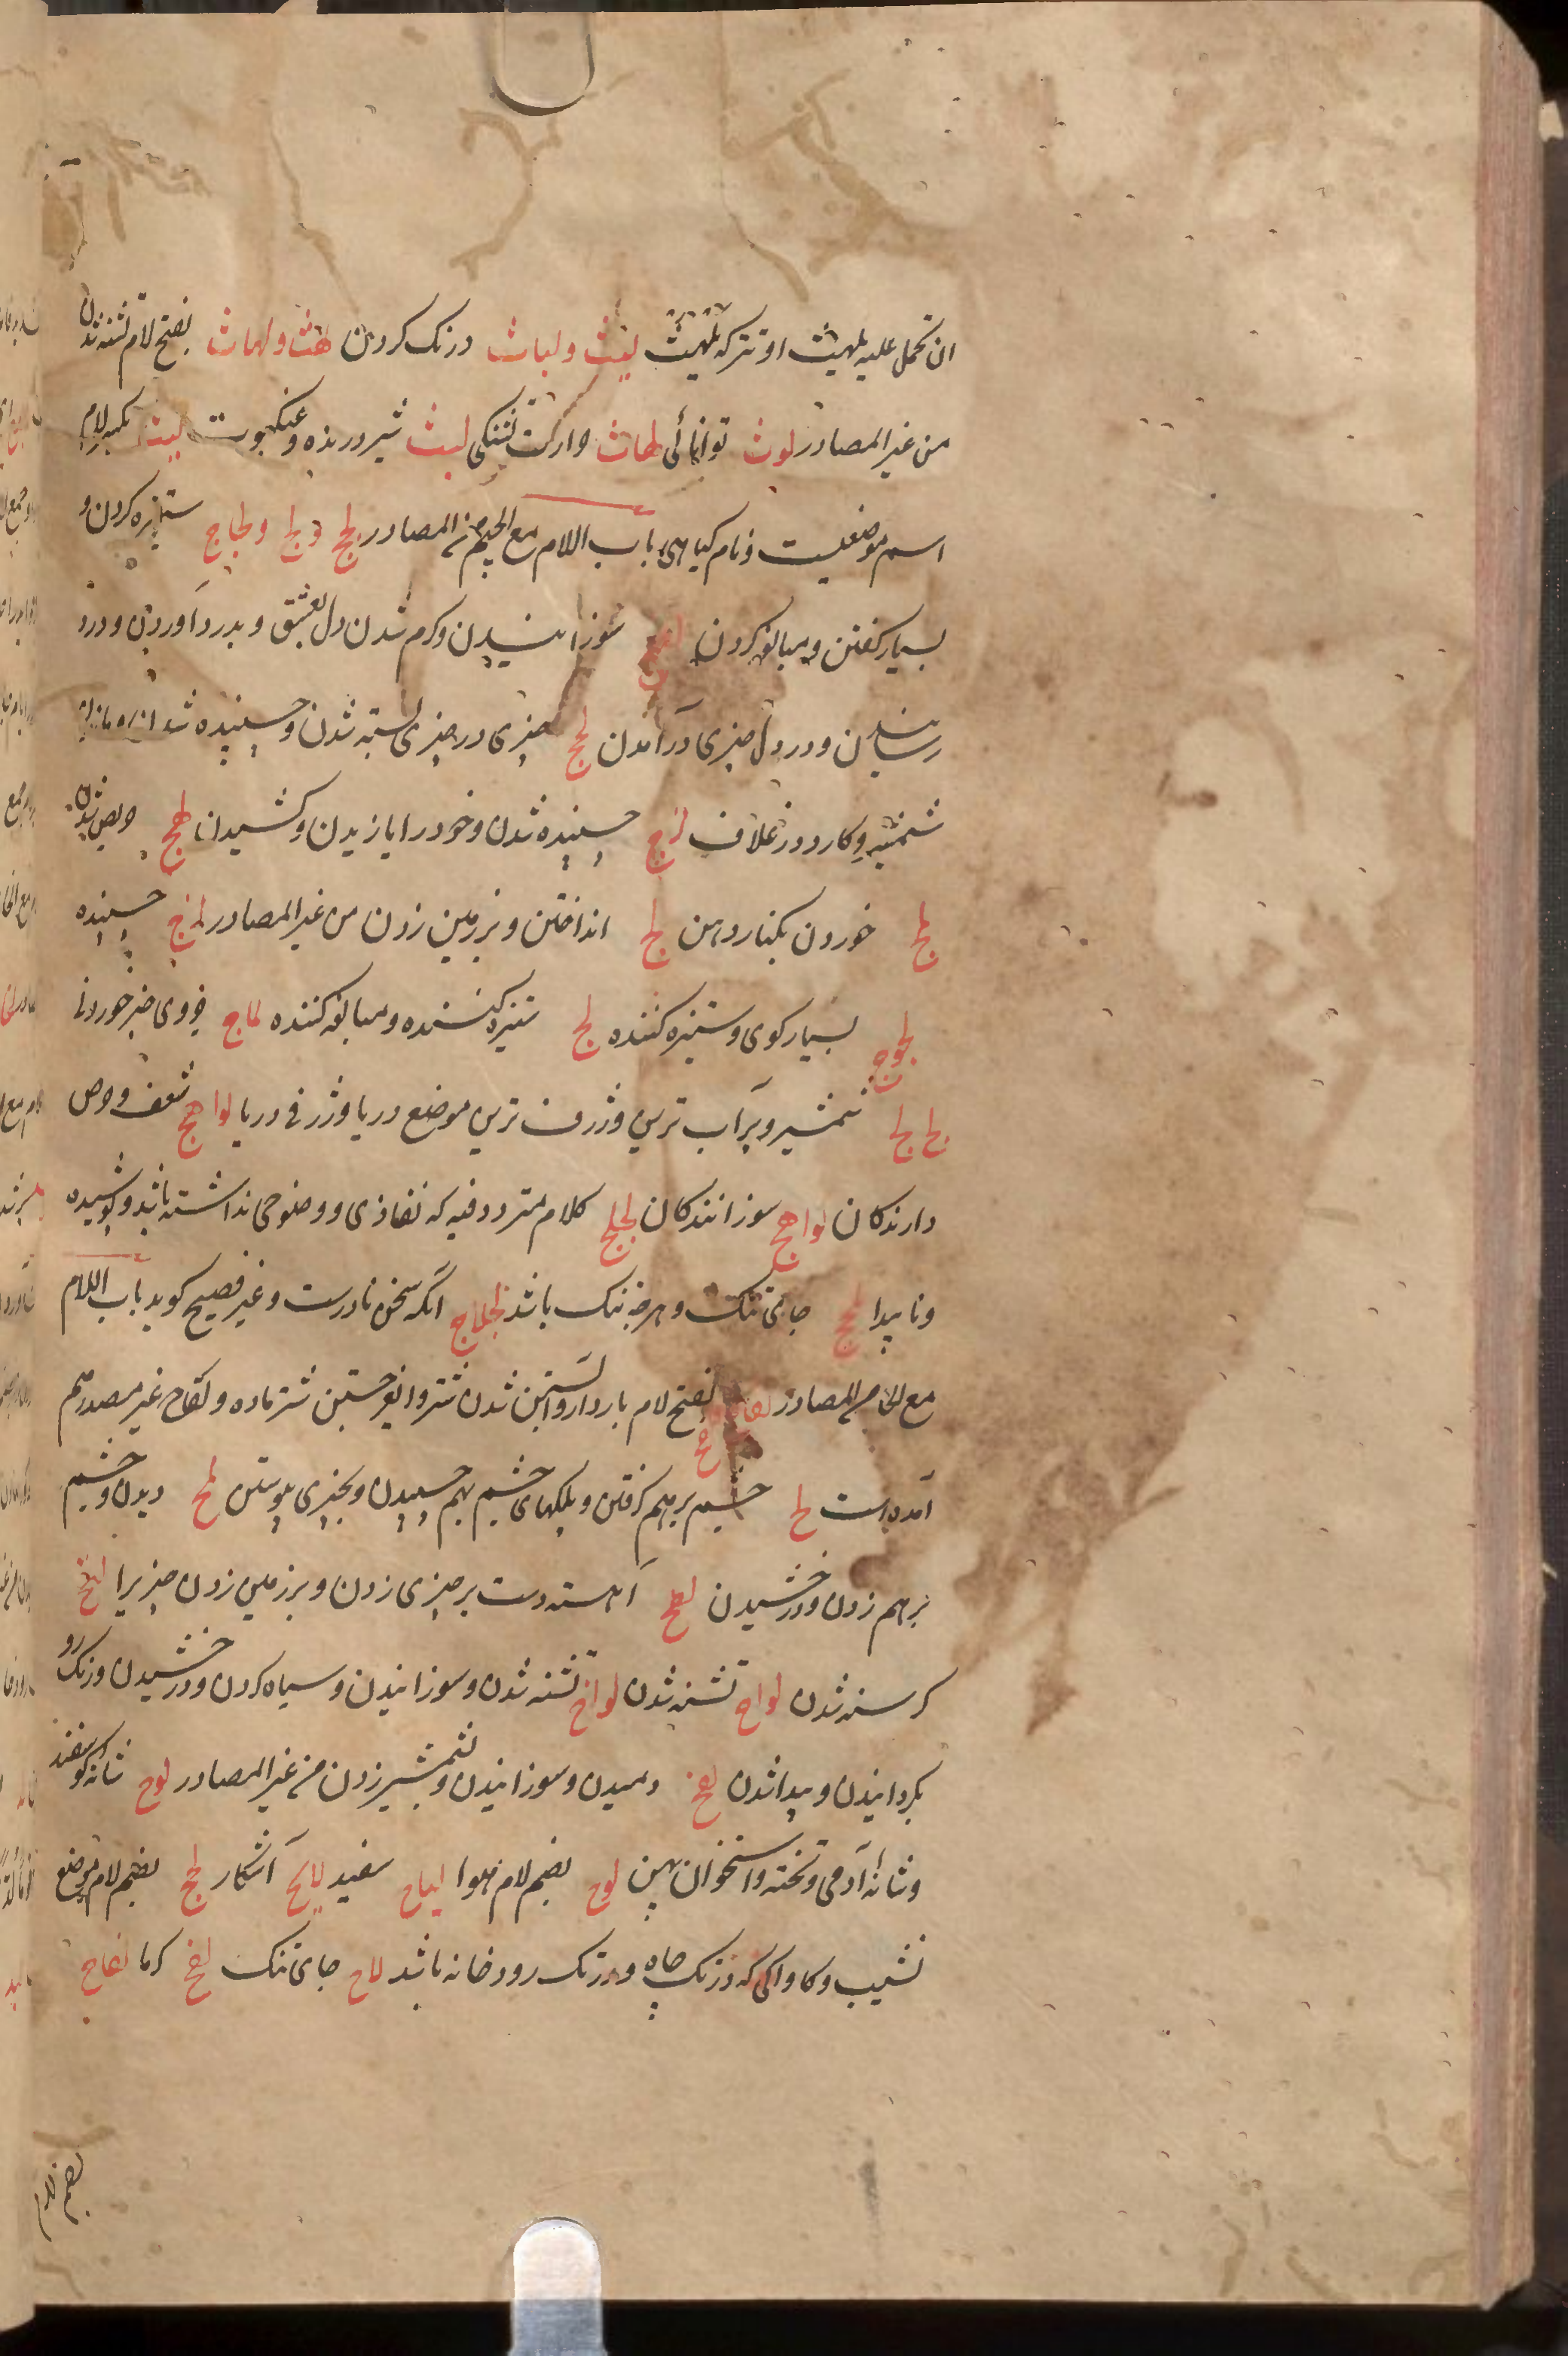 ان تحمل علیه یلهث او تترکه یلهث لبث و لباث درنک کردن لهث و لهاث بفتح لام تشنه شدن
من غیر المصادر لوث توانائی لهاث حرارت تشنکی لیث شیر درنده و عنکبوت لیث بکسر لام
اسم موضعیست و نام کیاهی باب اللام مع الجیم من المصادر لجج و لج و لجاج ستیزه کردن و
بسیار کفتن و مبالغه کردن لعج سوزانیدن و کرم شدن دل بعشق و بدرد آوردن و درد
رسانیدن و در دل چیزی درآمدن لحج چیزی در چیزی بسته شدن و چسپیده شدن
شمشیر و کارد در غلاف لزج چسپیده شدن و خود را یازیدن و کشیدن لهج حریص شدن
لمج خوردن بکنار دهن لبج انداختن و بزمین زدن من غیر المصادر لزج چسپنده
لجوج بسیار کوی و ستیزه کننده لج ستیزه کننده و مبالغه کننده لماج چیز خوردنی
لج لج شمشیر و پرآب ترین و ژرف ترین موضع دریا و ژرفی دریا لواهج شعف و حرص
دارندکان لواعج سوزانندکان لجلج کلام متردد فیه که نفاذی و وضوحی نداشته باشد و پوشیده
و ناپیدا لحج جای تنک و هرچه تنک باشد لجلاج آنکه سخن نادرست و غیر فصیح کوید باب اللام
مع الحاء من المصادر لقاح بفتح لام باردار و آبستن شدن شتر و شتر ماده و لقاح غیر مصدر هم
آمده است لح چشم برهم کرفتن و پلکهای چشم بهم چسپیدن و بچیزی پیوستن لمح دیدن و چشم
برهم زدن و درخشیدن لطح آهسته دست بر چیزی زدن و بر زمین زدن چیزیرا
کرسنه شدن لواح تشنه شدن لواح تشنه شدن و سوزانیدن و سیاه کردن و درخشیدن و رنک رو
بکردانیدن و پیدا شدن لفح دمیدن و سوزانیدن و بشمشیر زدن من غیر المصادر لوح شانه کوسفند
و شانه آدمی و تخته و استخوان پهن لوح بضم لام هوا لیاح سفید لایح آشکار لحج بضم لام موضع
نشیب و کاواکی که در تک چاه و در تک رودخانه باشد لاح جای تنک لفح کرما لفاح
بضم لام